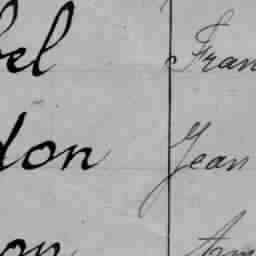 bel Fran
don Jean
on